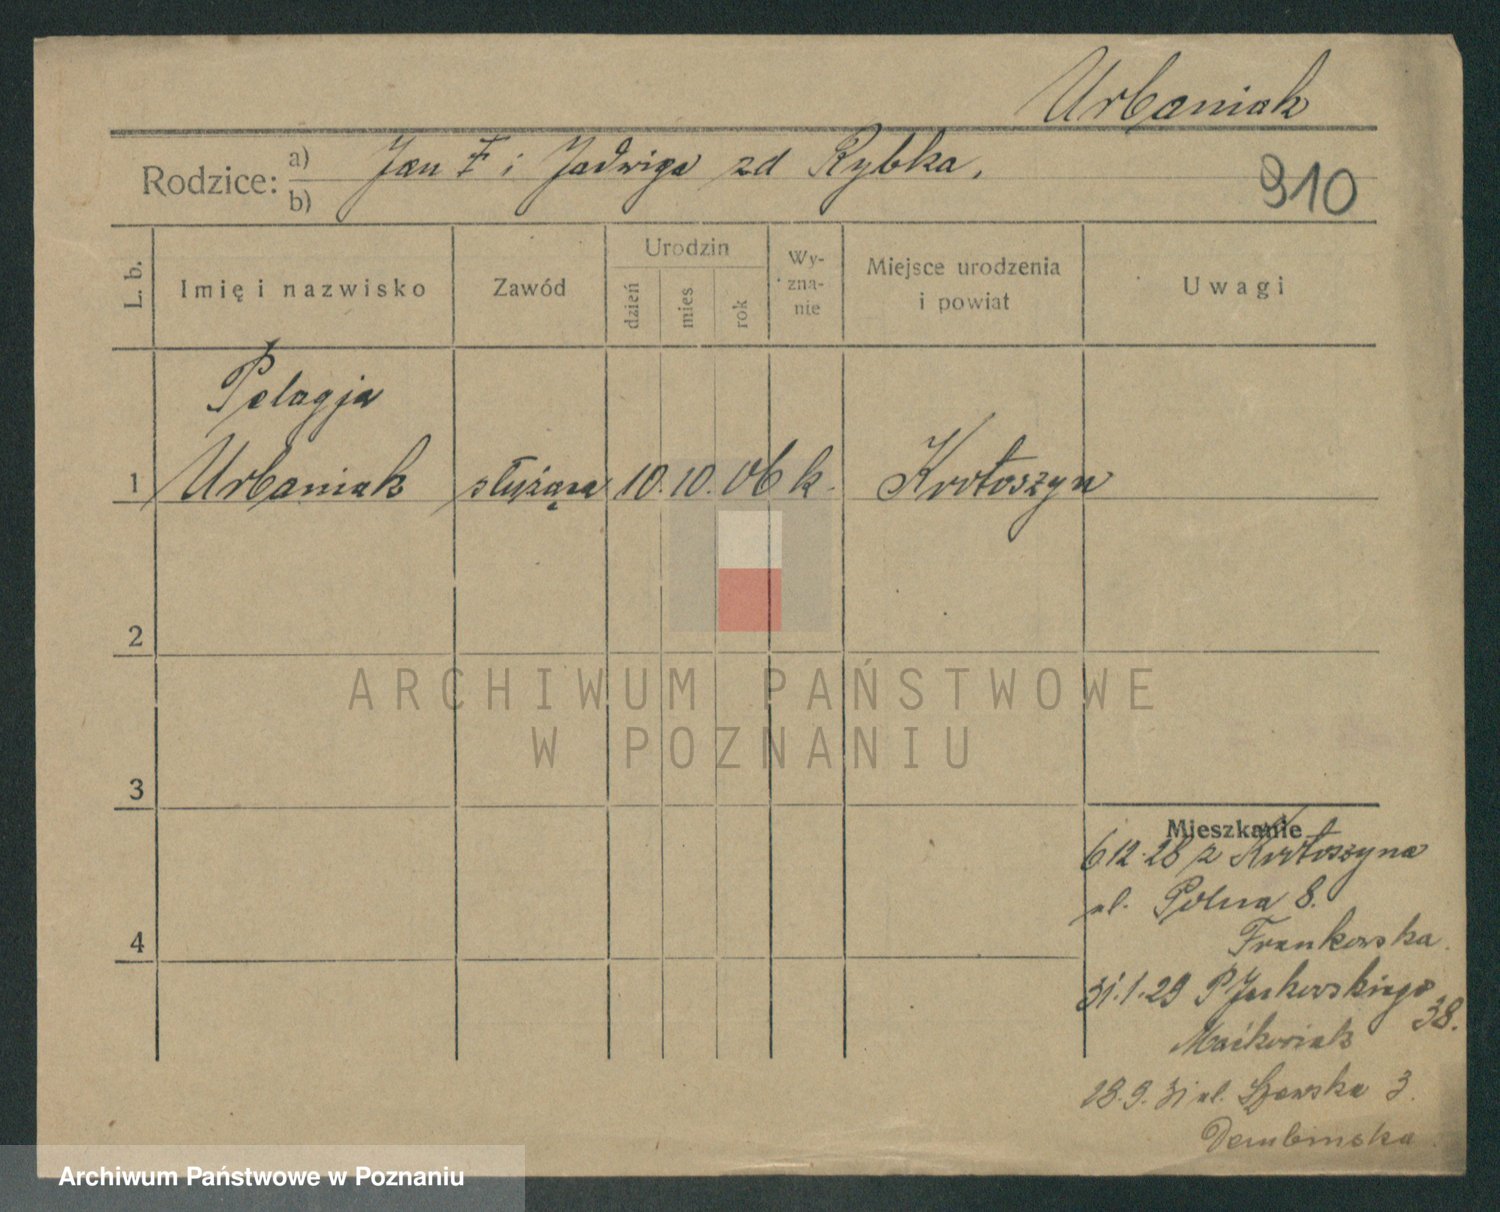 Urbaniak
Rodzice: a) b) Jan i Jadwiga zd Rybka.
910
L. b. Imię i nazwisko Zawód Urodzin dzień mies rok Wy-zna-nie Miejsce urodzenia i powiat Uwagi
Pelagja
1 Urbaniak służąca 10. 10. 06 k. Krotoszyn
2
ARCHIWUM PAŃSTWOWE
W POZNANIU
3
Mieszkanie
6.12.28 z Krotoszyna
ul. Polna 8.
Frankowska.
4
31.1.29 P
38.
Maćkowiak
28.9.31 ul. Szewska 3.
Dembinska
Archiwum Państwowe w Poznaniu